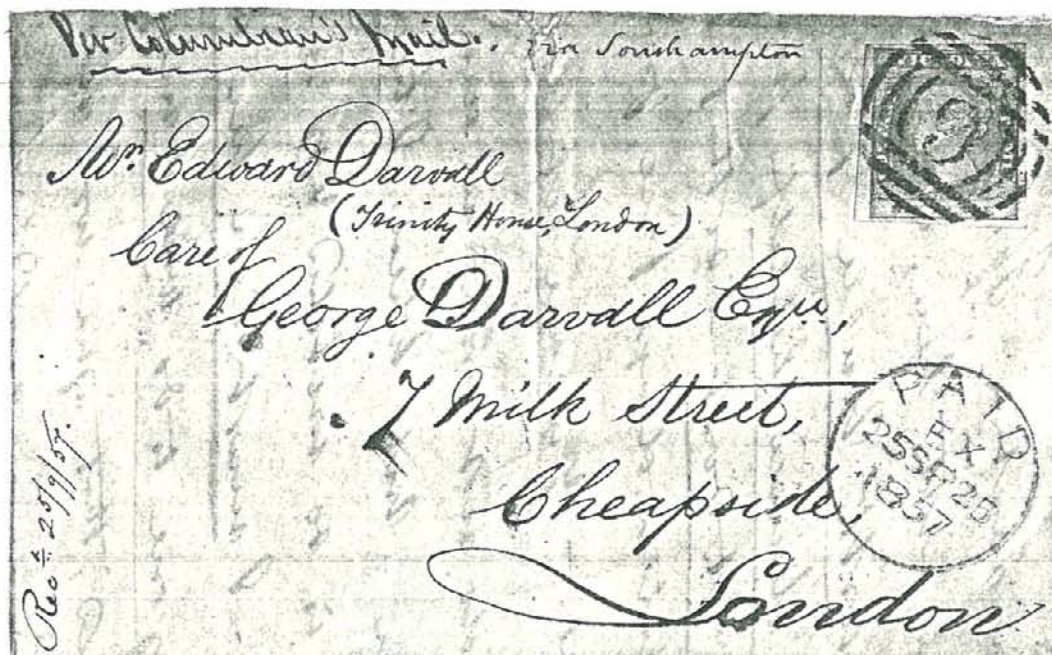 Per Columbian's Mail. Via Southampton
Mr. Edward Darvall
(Trinity House, London)
Care of
George Darvall Esqre,
7 Milk Street,
Cheapside,
London
Recd 25/9/57.
PAID
25 SP 25
1857